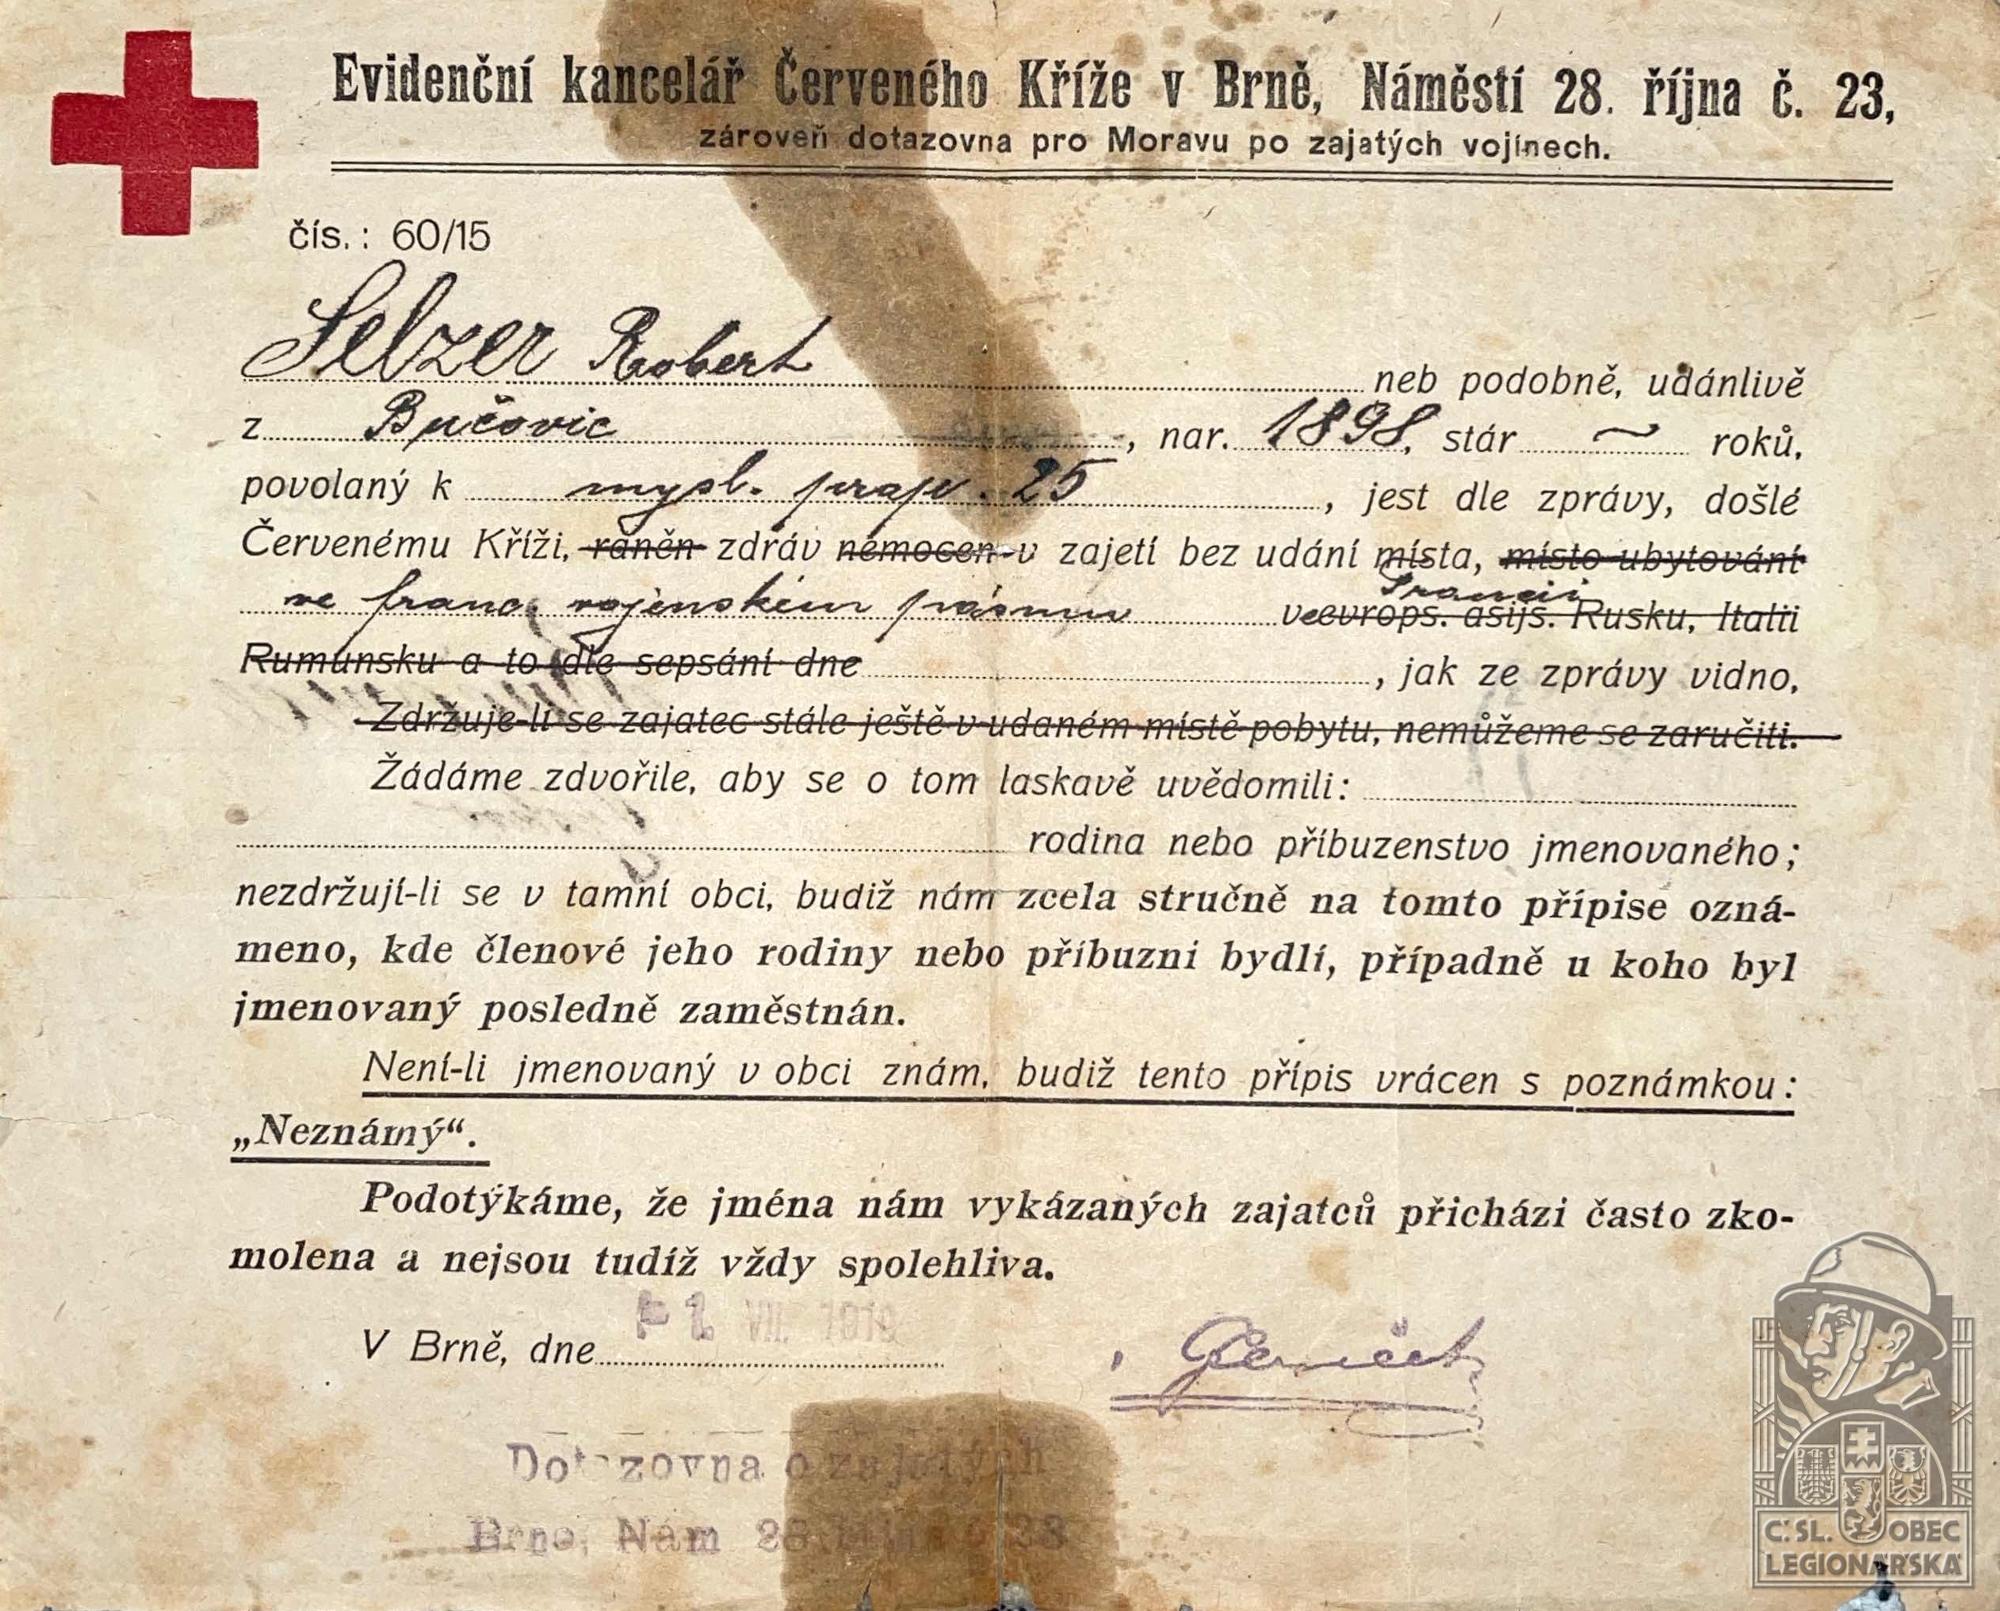 Evidenční kancelář Červeného Kříže v Brně, Náměstí 28. října č. 23,
zároveň dotazovna pro Moravu po zajatých vojínech.
čís.: 60/15
Selzer Robert neb podobně, udánlivě
z Bučovic, nar. 1898, stár ~ roků,
povolaný k mysl. prap. 25, jest dle zprávy, došlé
Červenému Kříži, raněn zdráv nemocen v zajetí bez udání místa, místo ubytování
Francii
ve franc. vojenském pásmu v evrops. asijs. Rusku, Italii
Rumunsku a to dle sepsání dne, jak ze zprávy vidno,
Zdržuje-li se zajatec stále ještě v udaném místě pobytu, nemůžeme se zaručiti.
Žádáme zdvořile, aby se o tom laskavě uvědomili:
rodina nebo příbuzenstvo jmenovaného;
nezdržují-li se v tamní obci, budiž nám zcela stručně na tomto přípise ozná-
meno, kde členové jeho rodiny nebo příbuzni bydlí, případně u koho byl
jmenovaný posledně zaměstnán.
Není-li jmenovaný v obci znám, budiž tento přípis vrácen s poznámkou:
„Neznámý“.
Podotýkáme, že jména nám vykázaných zajatců přichází často zko-
molena a nejsou tudíž vždy spolehliva.
V Brně, dne 1. VII. 1919
Dotazovna o zajatých
Brno, Nám 28
Č. SL. OBEC
LEGIONÁŘSKÁ